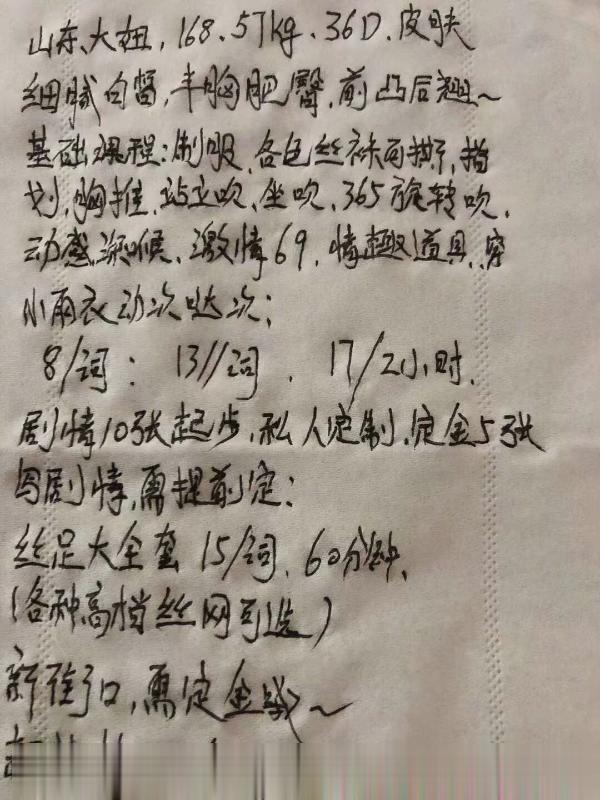 山东、大妞，168.57kg、36D.皮肤
细腻白皙，丰胸肥臀，前凸后翘~
基础课程：制服、各色丝袜可撕，指
划，胸推、站立吹、坐吹、365旋转吹、
动感深喉、激情69，情趣道具、穿
小雨衣动次哒次；
8/词： 13//词 、 17/2小时.
剧情10张起步，私人定制、定金5张
写剧情，需提前定：
丝足大全套 15/词、60分钟、
（各种高档丝网可选）
新街口，需定金哦~